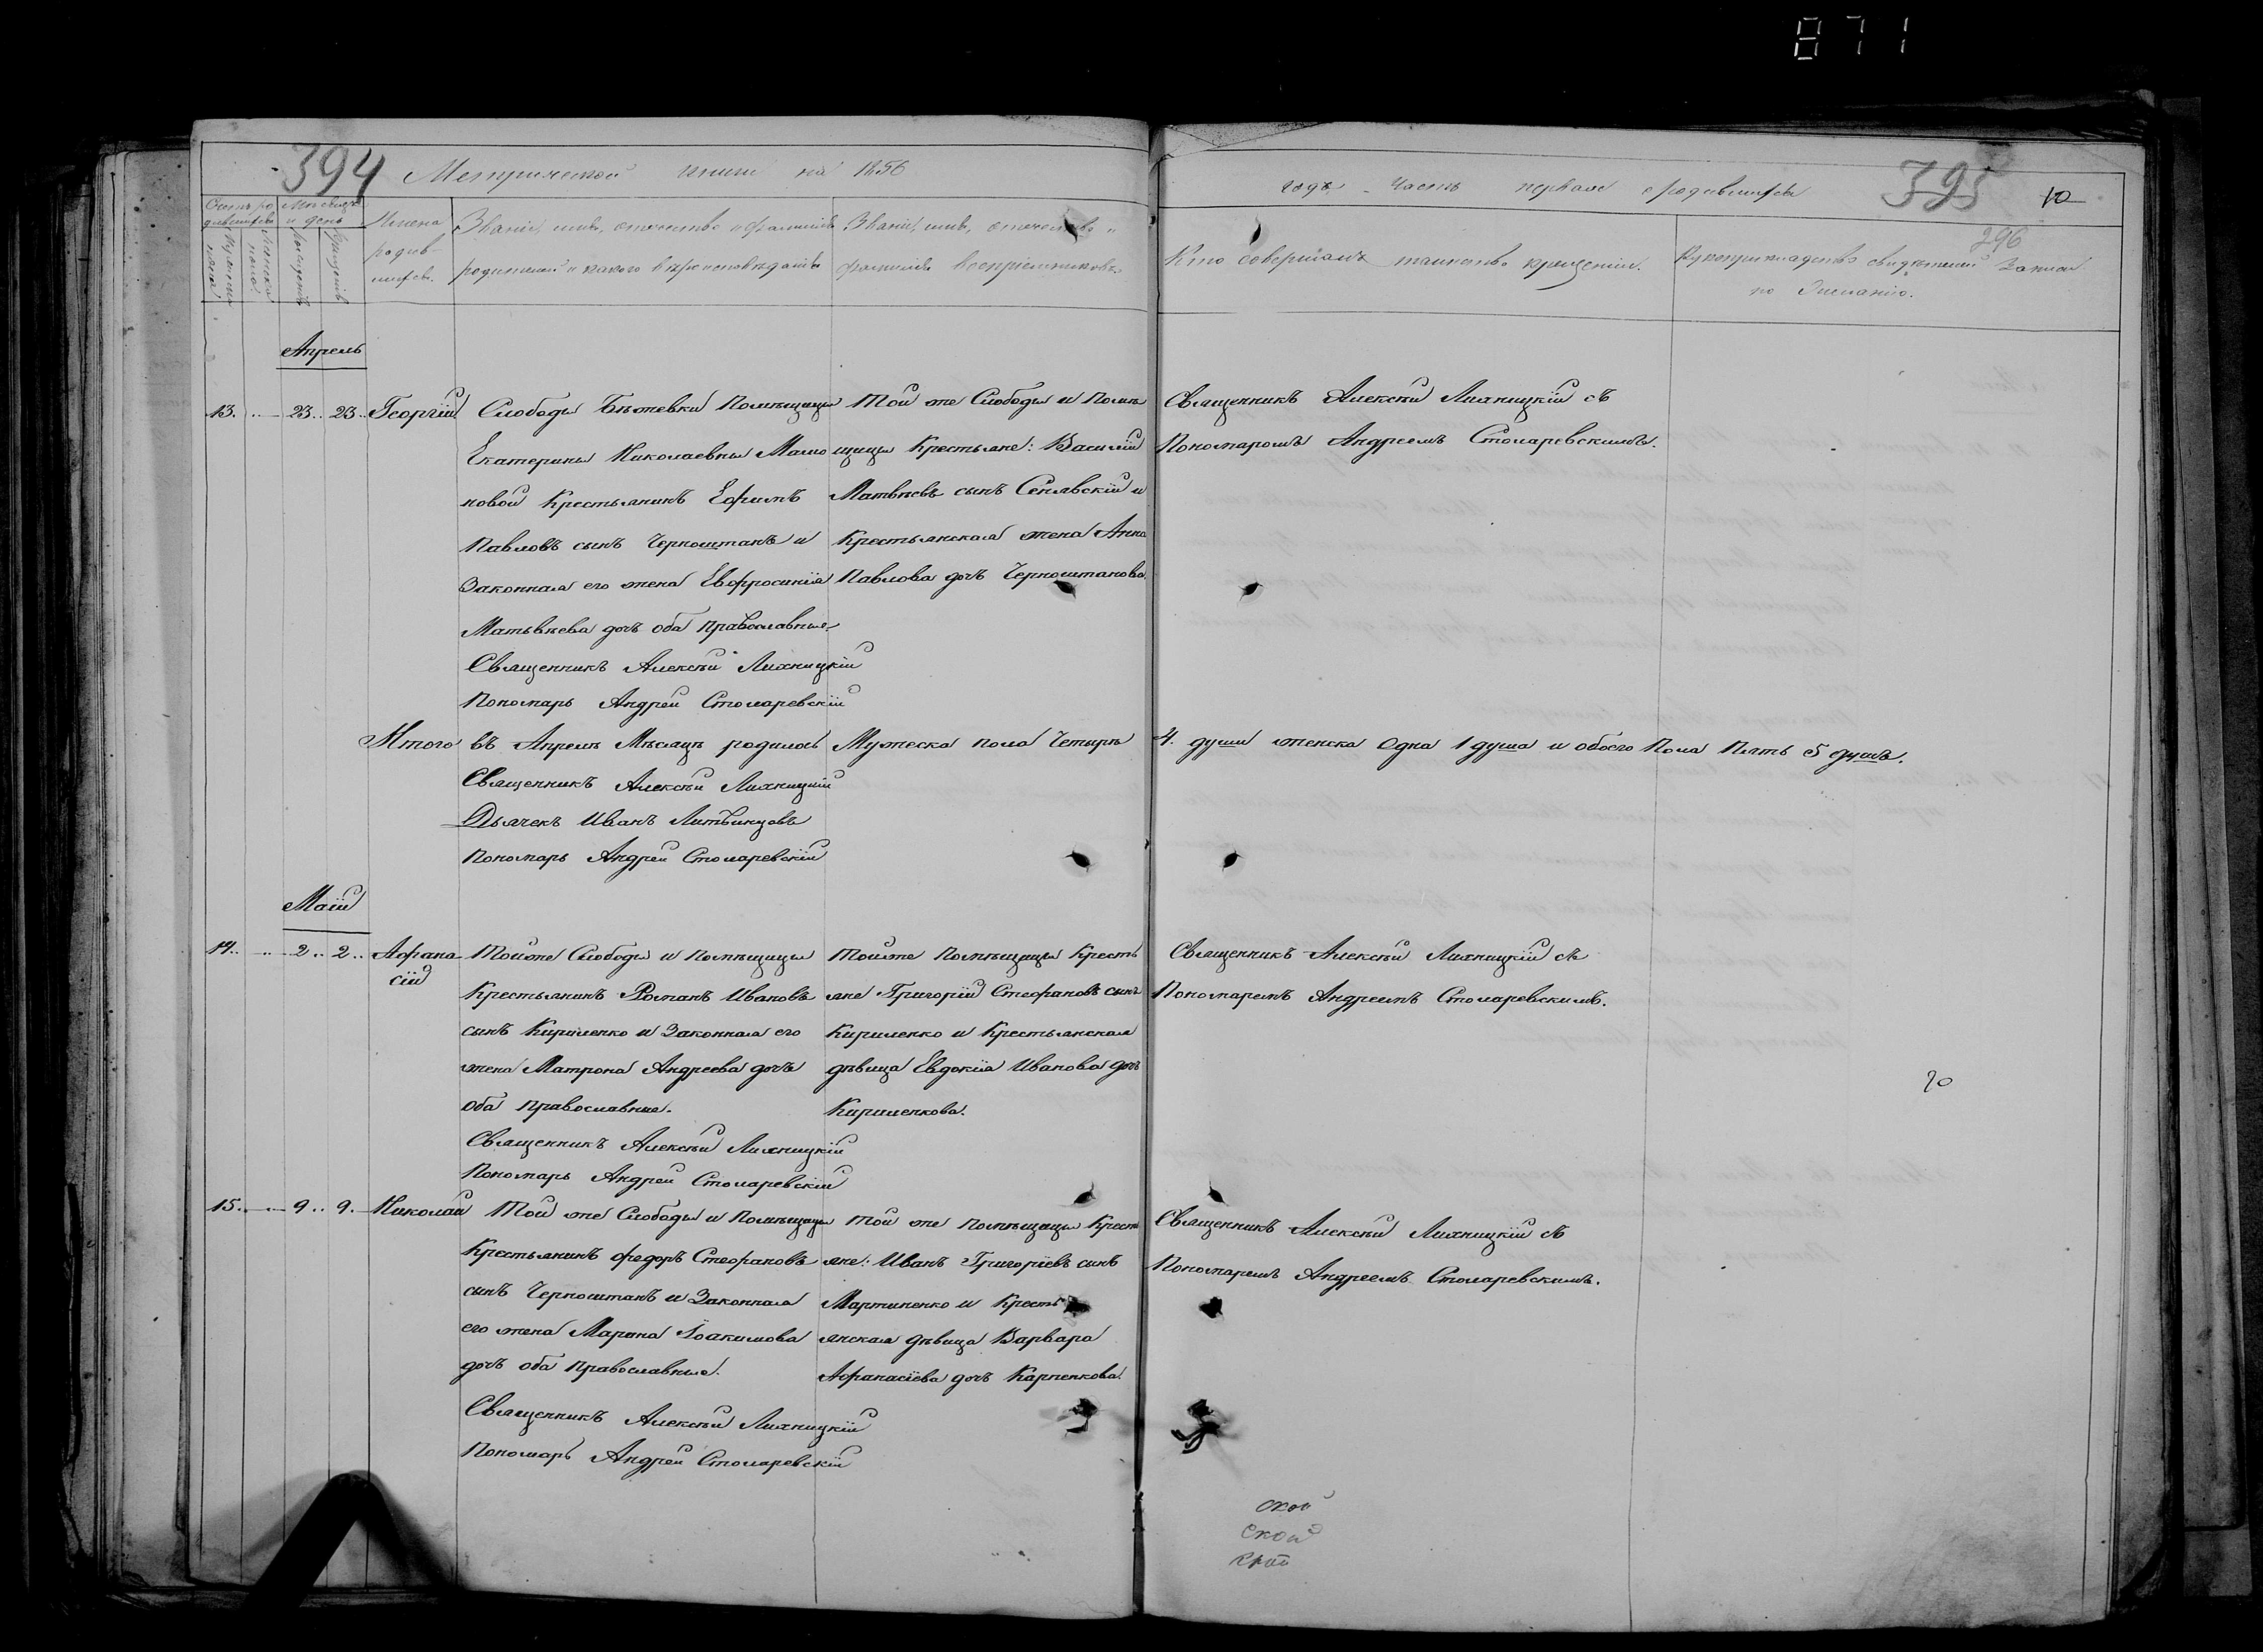 871
394 Метрической книги на 1856
года Часть первая о родившихся 395 10
296
Счетъ родившихся
Мужеска пола
Женска пола
Мѣсяцъ и день
Рожденія
Крещенія
Имена родившихся.
Званіе, имя, отечество и фамилія
родителей и какого вѣроисповѣданія
Званіе, имя, отечество и
фамилія воспріемниковъ.
Кто совершалъ таинство крещенія.
Рукоприкладство свидѣтелей записи
по желанію.
Апрель
13. 23. 23. Георгій
Слободы Бѣжевки Помѣщицы
Екатерины Николаевны Мало
новой Крестьянинъ Ефимъ
Павловъ сынъ Черноштанъ и
Законная его жена Евфросинія
Матвѣева дочь оба православные.
Священникъ Алексѣй Лихницкій
Пономарь Андрей Столаревскій
Той же Слободы и Помѣ
щицы Крестьяне: Василій
Матвѣевъ сынъ Сенявскій и
Крестьянская жена Анна
Павлова дочь Черноштанова.
Священникъ Алексѣй Лихницкій съ
Пономаромъ Андреемъ Столаревскимъ.
Итого въ Апрелѣ Мѣсяцѣ родилось Мужеска пола Четыре 4. души женска Одна 1 душа и обоего Пола Пять 5 душъ.
Священникъ Алексѣй Лихницкій
Дьячекъ Иванъ Литвинцовъ
Пономарь Андрей Столаревскій
Маій
14. 2. 2. Афана
сій
Тойже Слободы и Помѣщицы
Крестьянинъ Романъ Ивановъ
сынъ Кириленко и Законная его
жена Матрона Андреева дочь
оба православные.
Священникъ Алексѣй Лихницкій
Пономарь Андрей Столаревскій
Тойже Помѣщицы Кресть
яне Григорій Стефановъ сынъ
Кириленко и Крестьянская
дѣвица Евдокія Иванова дочь
Кириленкова.
Священникъ Алексѣй Лихницкій съ
Пономаремъ Андреемъ Столаревскимъ.
15. 9. 9. Николай
Той же Слободы и Помѣщицы
Крестьянинъ Федоръ Стефановъ
сынъ Черноштанъ и Законная
его жена Марина Іоакимова
дочь оба православные.
Священникъ Алексѣй Лихницкій
Пономарь Андрей Столаревскій
Той же Помѣщицы Кресть
яне: Иванъ Григоріевъ сынъ
Мартиненко и Кресть
янская дѣвица Варвара
Афанасіева дочь Карпенкова.
Священникъ Алексѣй Лихницкій съ
Пономаремъ Андреемъ Столаревскимъ.
ской
ской